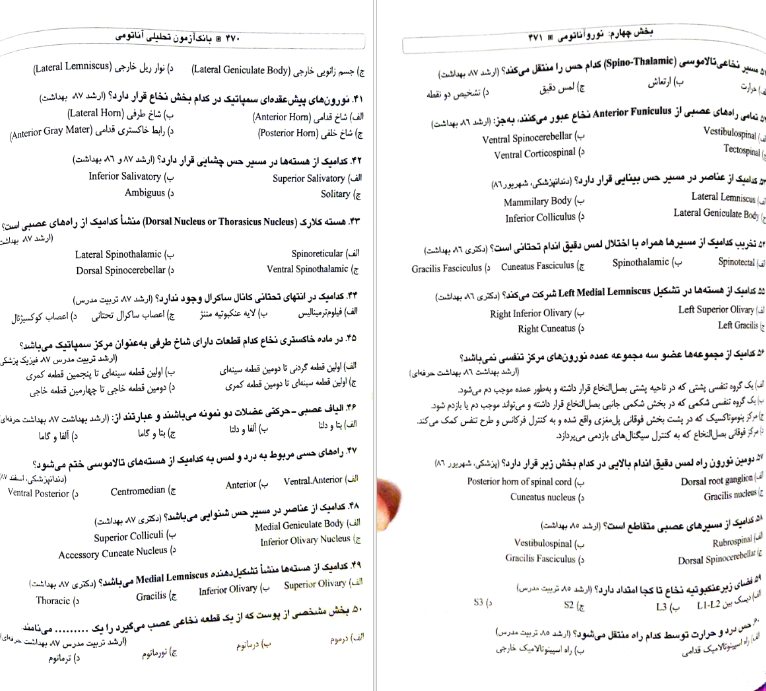 ۴۷۰ ■ بانک آزمون تحلیلی آناتومی
ج) جسم زانویی خارجی (Lateral Geniculate Body) د) نوار ریل خارجی (Lateral Lemniscus)
۴۱. نورون‌های پیش‌عقده‌ای سمپاتیک در کدام بخش نخاع قرار دارد؟ (ارشد ۸۷، بهداشت)
الف) شاخ قدامی (Anterior Horn) ب) شاخ طرفی (Lateral Horn)
ج) شاخ خلفی (Posterior Horn) د) رابط خاکستری قدامی (Anterior Gray Mater)
۴۲. کدامیک از هسته‌ها در مسیر حس چشایی قرار دارد؟ (ارشد ۸۷ و ۸۶، بهداشت)
الف) Superior Salivatory ب) Inferior Salivatory
ج) Solitary د) Ambiguus
۴۳. هسته کلارک (Dorsal Nucleus or Thorasicus Nucleus) منشأ کدامیک از راه‌های عصبی است؟
(ارشد ۸۷، بهداشت
الف) Spinoreticular ب) Lateral Spinothalamic
ج) Ventral Spinothalamic د) Dorsal Spinocerebellar
۴۴. کدامیک در انتهای تحتانی کانال ساکرال وجود ندارد؟ (ارشد ۸۷، تربیت مدرس)
الف) فیلوم‌ترمینالیس ب) لایه عنکبوتیه مننژ ج) اعصاب ساکرال تحتانی د) اعصاب کوکسیژئال
۴۵. در ماده خاکستری نخاع کدام قطعات دارای شاخ طرفی به‌عنوان مرکز سمپاتیک می‌باشد؟
(ارشد تربیت مدرس ۸۷، فیزیک پزشکی
الف) اولین قطعه گردنی تا دومین قطعه سینه‌ای ب) اولین قطعه سینه‌ای تا پنجمین قطعه کمری
ج) اولین قطعه سینه‌ای تا دومین قطعه کمری د) دومین قطعه خاجی تا چهارمین قطعه خاجی
۴۶. الیاف عصبی - حرکتی عضلات دو نمونه می‌باشند و عبارتند از: (ارشد بهداشت ۸۷، بهداشت حرفه‌ای
الف) بتا و دلتا ب) آلفا و دلتا ج) بتا و گاما د) آلفا و گاما
۴۷. راه‌های حسی مربوط به درد و لمس به کدامیک از هسته‌های تالاموسی ختم می‌شود؟
(دندانپزشکی، اسفند ۸۷
الف) Ventral.Anterior ب) Anterior ج) Centromedian د) Ventral Posterior
۴۸. کدامیک از عناصر در مسیر حس شنوایی می‌باشد؟ (دکتری ۸۷، بهداشت)
الف) Medial Geniculate Body ب) Superior Colliculi
ج) Inferior Olivary Nucleus د) Accessory Cuneate Nucleus
۴۹. کدامیک از هسته‌ها منشأ تشکیل‌دهنده Medial Lemniscus می‌باشد؟ (دکتری ۸۷، بهداشت)
الف) Superior Olivary ب) Inferior Olivary ج) Gracilis د) Thoracic
۵۰. بخش مشخصی از پوست که از یک قطعه نخاعی عصب می‌گیرد را یک ......... می‌نامند.
(ارشد تربیت مدرس ۸۷، بهداشت حرفه‌ای
الف) درموم ب) درماتوم ج) نورماتوم د) ترماتوم
بخش چهارم: نوروآناتومی ■ ۴۷۱
مسیر نخاعی تالاموسی (Spino-Thalamic) کدام حس را منتقل می‌کند؟ (ارشد ۸۷، بهداشت)
حرارت ب) ارتعاش ج) لمس دقیق د) تشخیص دو نقطه
تمامی راه‌های عصبی از Anterior Funiculus نخاع عبور می‌کنند، به‌جز: (ارشد ۸۶، بهداشت)
Vestibulospinal ب) Ventral Spinocerebellar
Tectospinal د) Ventral Corticospinal
۵۳. کدامیک از عناصر در مسیر حس بینایی قرار دارد؟ (دندانپزشکی، شهریور ۸۶)
Lateral Lemniscus ب) Mammilary Body
Lateral Geniculate Body د) Inferior Colliculus
۵۴. تخریب کدامیک از مسیرها همراه با اختلال لمس دقیق اندام تحتانی است؟ (دکتری ۸۶، بهداشت)
الف) Spinotectal ب) Spinothalamic ج) Cuneatus Fasciculus د) Gracilis Fasciculus
۵۵. کدامیک از هسته‌ها در تشکیل Left Medial Lemniscus شرکت می‌کند؟ (دکتری ۸۶، بهداشت)
الف) Left Superior Olivary ب) Right Inferior Olivary
ج) Left Gracilis د) Right Cuneatus
۵۶. کدامیک از مجموعه‌ها عضو سه مجموعه عمده نورون‌های مرکز تنفسی نمی‌باشد؟
(ارشد بهداشت ۸۶، بهداشت حرفه‌ای)
الف) یک گروه تنفسی پشتی که در ناحیه پشتی بصل‌النخاع قرار داشته و به‌طور عمده موجب دم می‌شود.
ب) یک گروه تنفسی شکمی که در بخش شکمی جانبی بصل‌النخاع قرار داشته و می‌تواند موجب دم یا بازدم شود.
ج) مرکز پنوموتاکسیک که در پشت بخش فوقانی پل‌مغزی واقع شده و به کنترل فرکانس و طرح تنفس کمک می‌کند.
د) مرکز فوقانی بصل‌النخاع که به کنترل سیگنال‌های بازدمی می‌پردازد.
۵۷. دومین نورون راه لمس دقیق اندام بالایی در کدام بخش زیر قرار دارد؟ (پزشکی، شهریور ۸۶)
الف) Dorsal root ganglion ب) Posterior horn of spinal cord
ج) Gracilis nucleus د) Cuneatus nucleus
۵۸. کدامیک از مسیرهای عصبی متقاطع است؟ (ارشد ۸۵، بهداشت)
الف) Rubrospinal ب) Vestibulospinal
ج) Dorsal Spinocerebellar د) Gracilis Fasciculus
۵۹. فضای زیرعنکبوتیه نخاع تا کجا امتداد دارد؟ (ارشد ۸۵، تربیت مدرس)
الف) دیسک بین L1-L2 ب) L3 ج) S2 د) S3
۶۰. حس درد و حرارت توسط کدام راه منتقل می‌شود؟ (ارشد ۸۵، تربیت مدرس)
الف) راه اسپینوتالامیک قدامی ب) راه اسپینوتالامیک خارجی